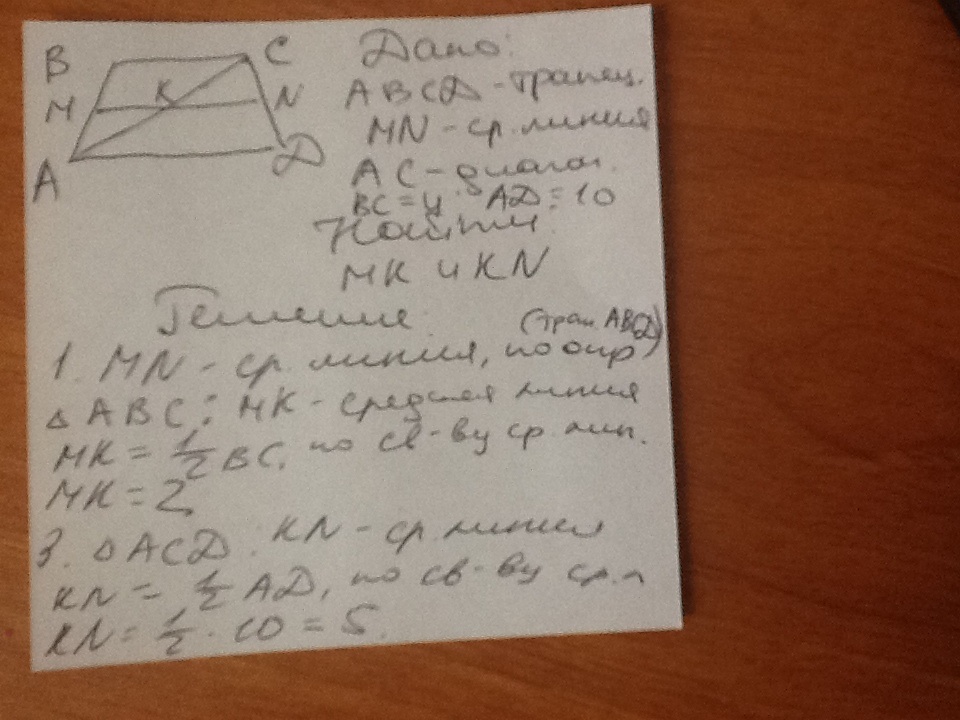 B C
M K N
A D
Дано:
ABCD - трапец.
MN - ср. линия
AC - диагон.
BC = 4 AD = 10
Найти:
MK и KN
Решение:
(трап. ABCD)
1. MN - ср. линия, по опр
△ABC: MK - средняя линия
MK = 1/2 BC, по св-ву ср. лин.
MK = 2
3. △ACD. KN - ср. линия
KN = 1/2 AD, по св-ву ср. л
KN = 1/2 · 10 = 5.